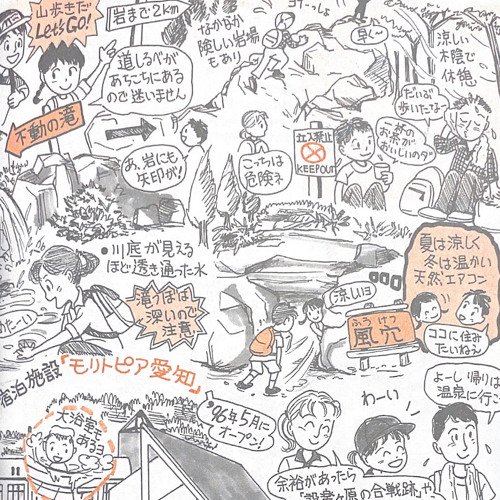 山歩きだ
Let's GO!
岩まで2km
道しるべが
あちこちにある
ので迷いません
なかなか
険しい岩場
もあり
早く〜
涼しい
木陰で
休憩
だいぶ
歩いたなー
森の
お茶が
おいしいのダ
不動の滝
あ、岩にも
矢印が!
こっちは
危険ネ
立入禁止
KEEPOUT
●川底が見える
ほど透き通った水
滝つぼは
深いので
注意
夏は涼しく
冬は温かい
天然エアコン
涼しいヨ
ふうけつ
風穴
ココに住み
たいねえ
宿泊施設「モリトピア愛知」
'96年5月に
オープン!
大浴室も
あるヨ
わーい
よーし帰りは
温泉に行こ
余裕があったら
合戦跡」や